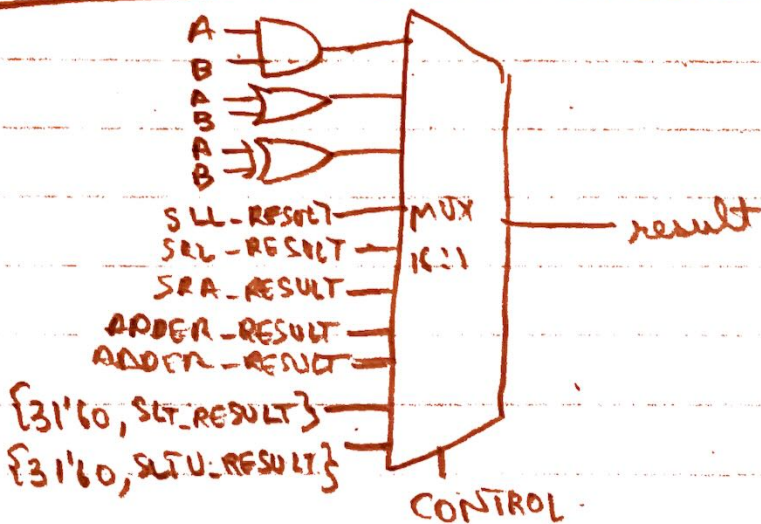 A
B
A
B
A
B
SLL_RESULT
SRL_RESULT
SRA_RESULT
ADDER_RESULT
ADDER_RESULT
{31'b0, SLT_RESULT}
{31'b0, SLTU_RESULT}
MUX
16:1
result
CONTROL